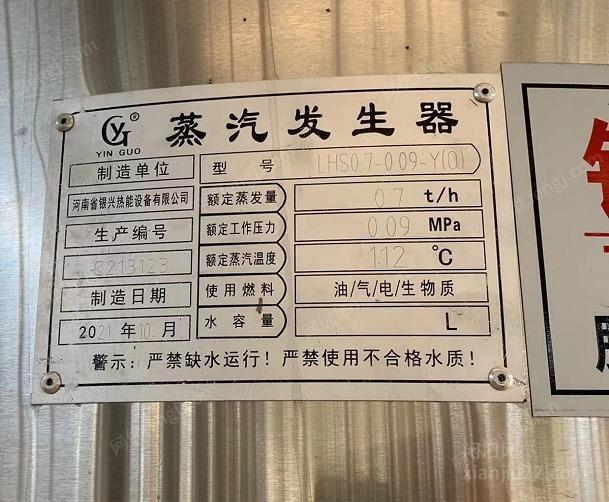 YG®
YIN GUO
蒸汽发生器
制造单位
河南省银兴热能设备有限公司
生产编号
C213123
制造日期
2021年10月
型 号 LHS0.7-0.09-Y(Q)
额定蒸发量 0.7 t/h
额定工作压力 0.09 MPa
额定蒸汽温度 112 ℃
使用燃料 油/气/电/生物质
水容量 L
警示：严禁缺水运行！严禁使用不合格水质！